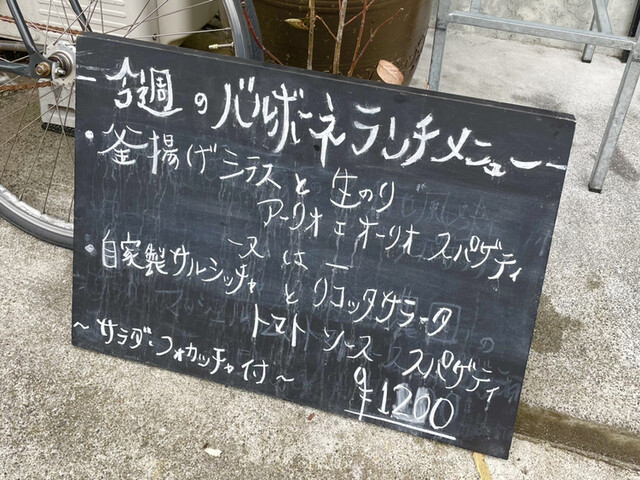 今週のバルボーネランチメニュー
• 釜揚げシラスと生のり
アーリオエオーリオ スパゲティ
– 又は –
• 自家製サルシッチャとリコッタサラータ
トマトソース スパゲティ
〜サラダ・フォカッチャ付〜
¥1200